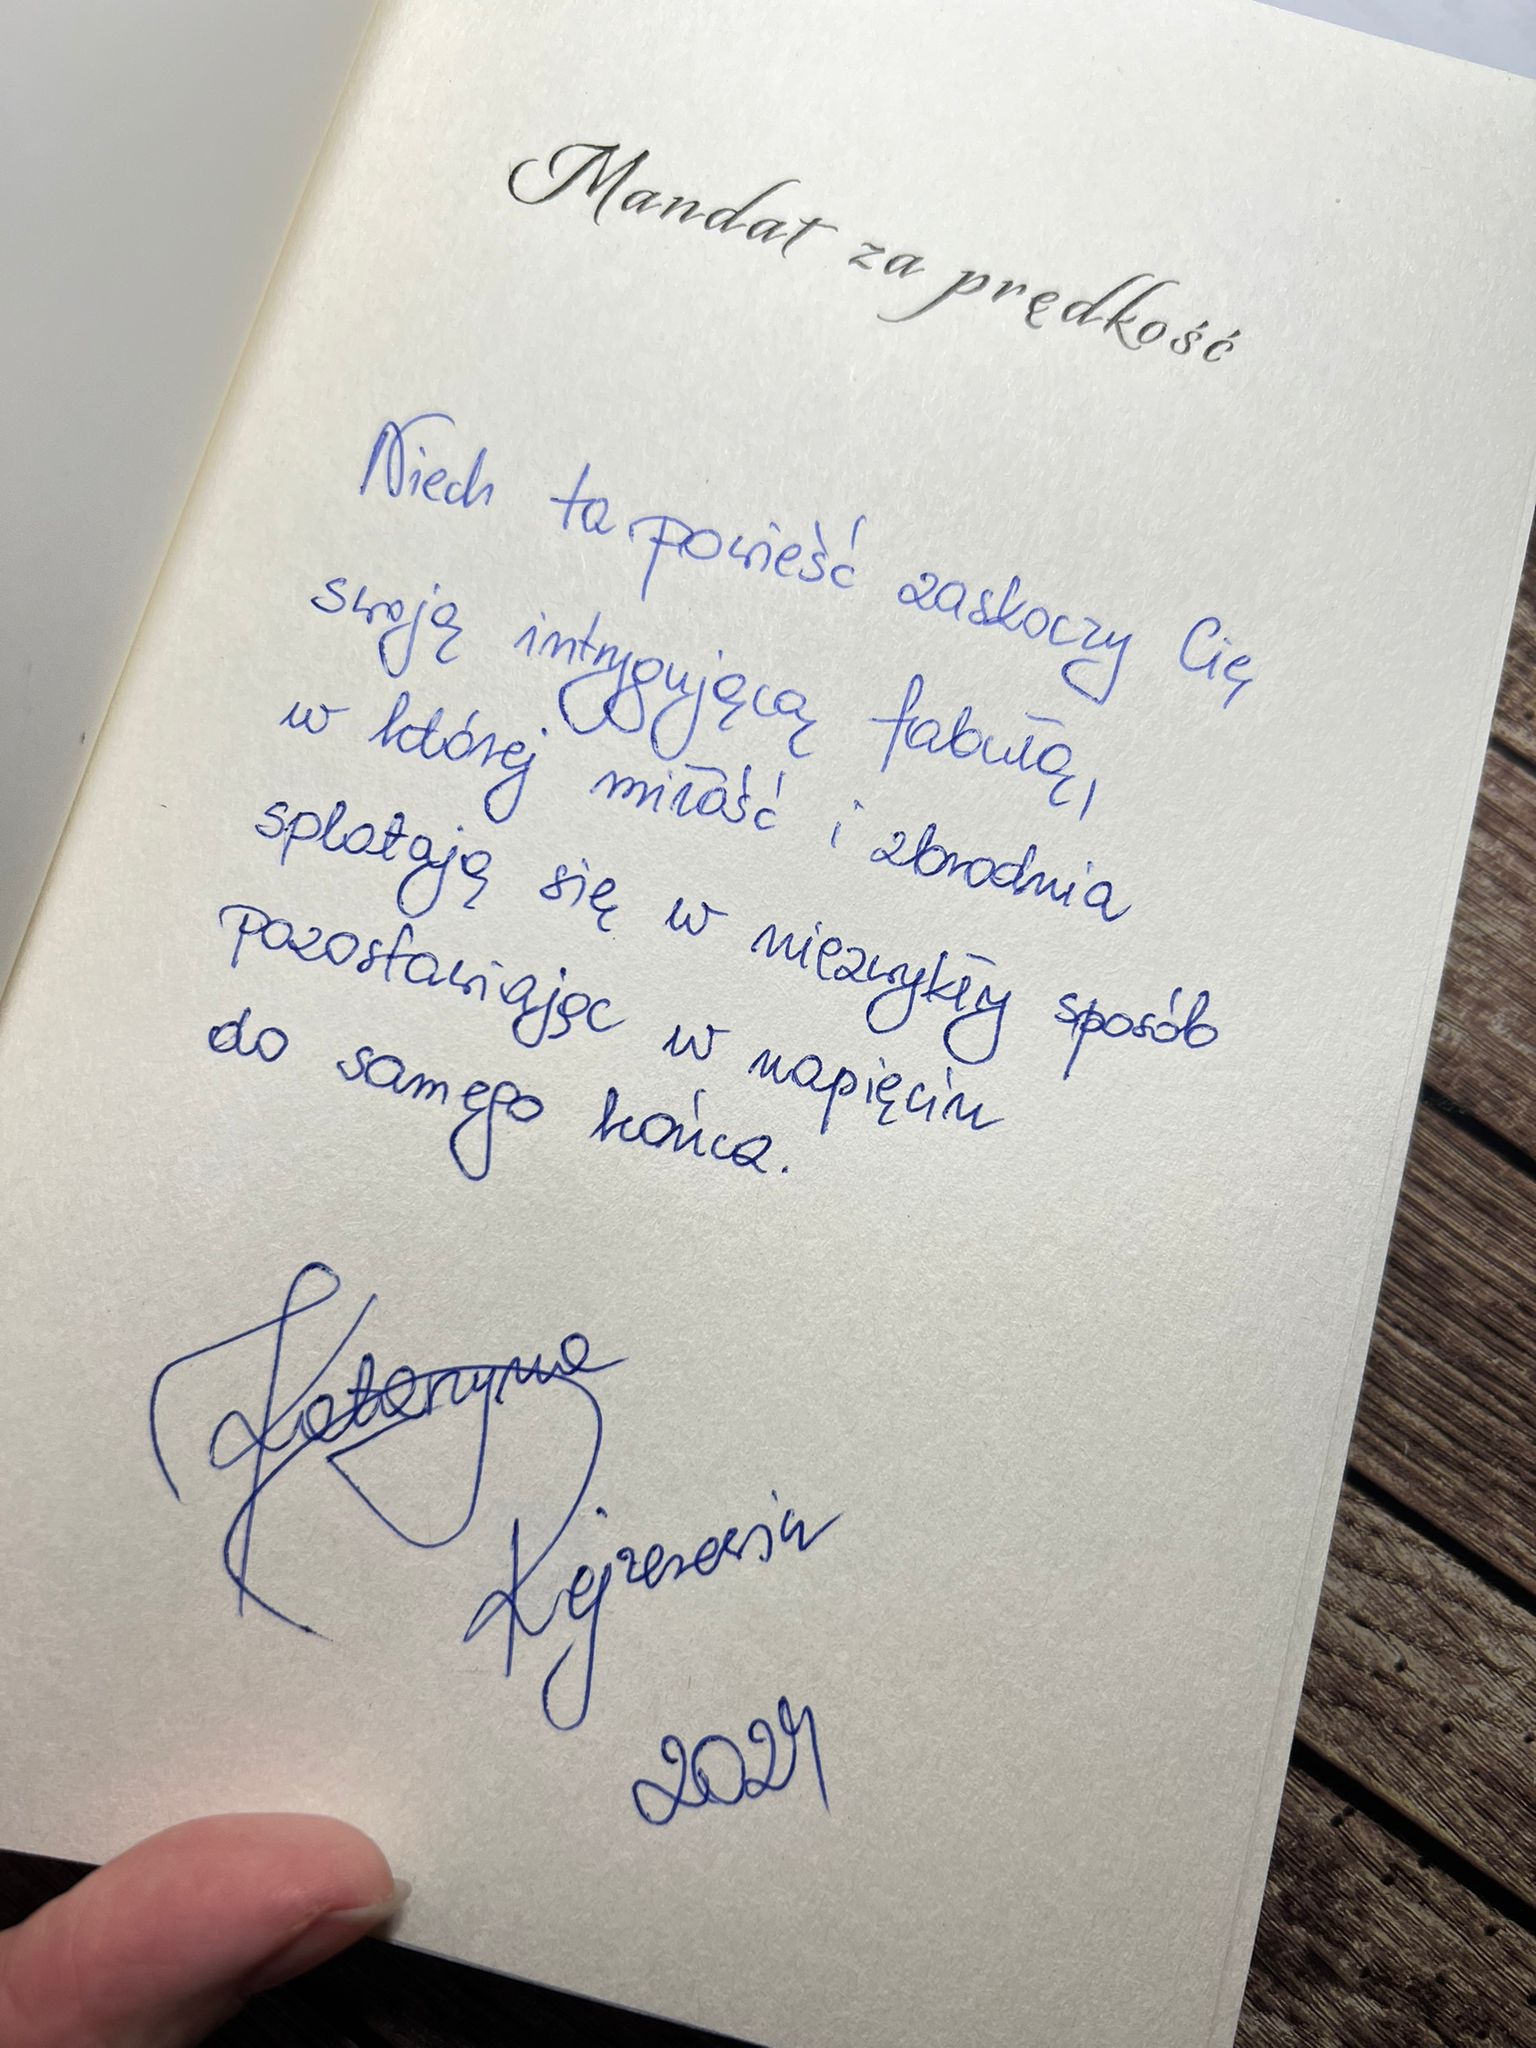 Mandat za prędkość
Niech ta powieść zaskoczy Cię
swoją intrygującą fabułą,
w której miłość i zbrodnia
splatają się w niezwykły sposób
pozostawiając w napięciu
do samego końca.
Katarzyna
2024